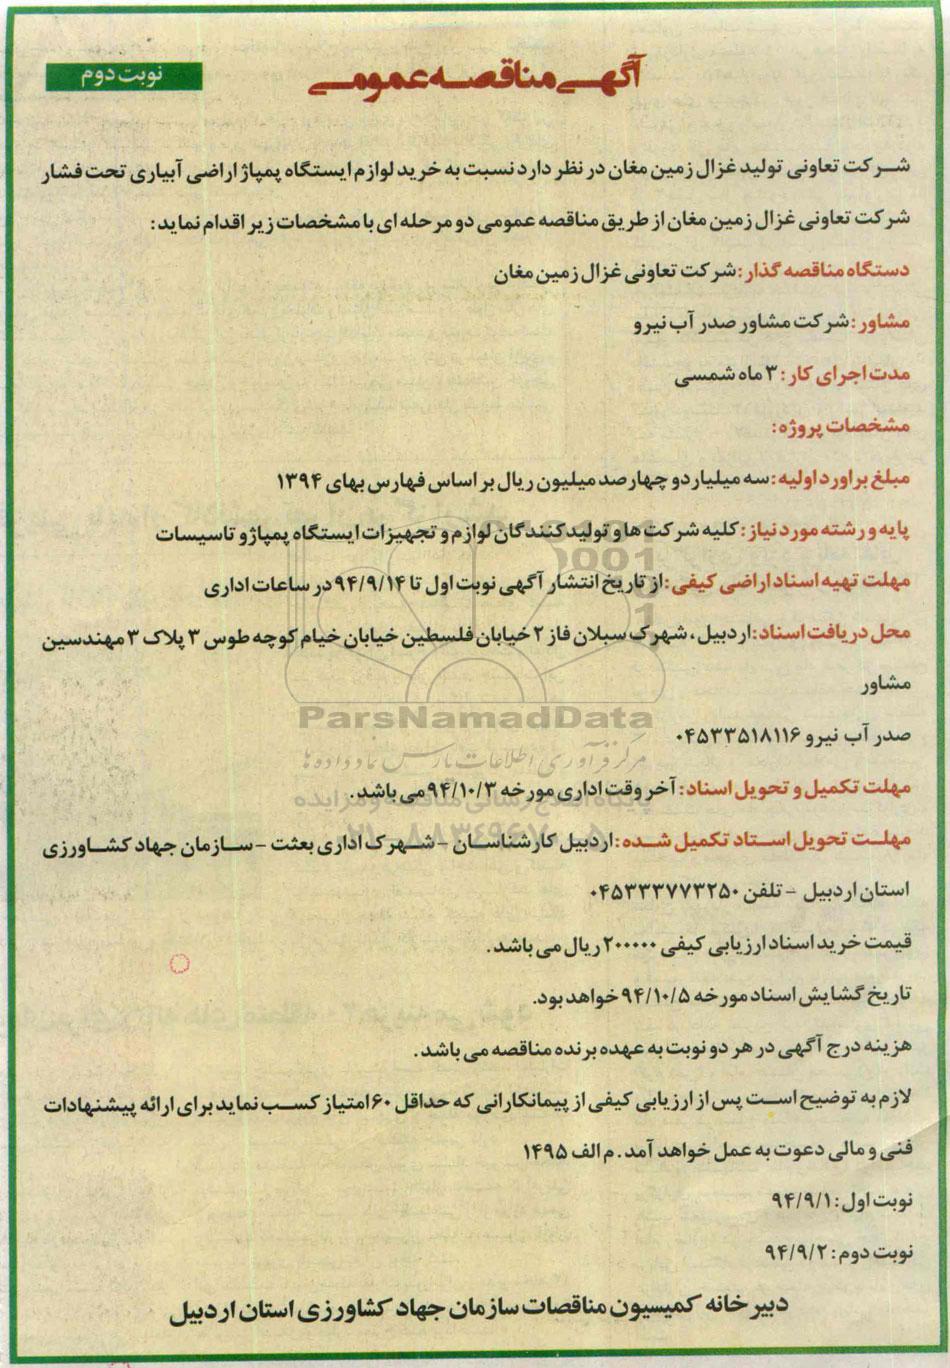 نوبت دوم
آگهی مناقصه عمومی
شرکت تعاونی تولید غزال زمین مغان در نظر دارد نسبت به خرید لوازم ایستگاه پمپاژ اراضی آبیاری تحت فشار
شرکت تعاونی غزال زمین مغان از طریق مناقصه عمومی دو مرحله ای با مشخصات زیر اقدام نماید:
دستگاه مناقصه گذار: شرکت تعاونی غزال زمین مغان
مشاور: شرکت مشاور صدر آب نیرو
مدت اجرای کار: ۳ ماه شمسی
مشخصات پروژه:
مبلغ براورد اولیه: سه میلیارد و چهارصد میلیون ریال بر اساس فهارس بهای ۱۳۹۴
پایه و رشته مورد نیاز: کلیه شرکت ها و تولید کنندگان لوازم و تجهیزات ایستگاه پمپاژ و تاسیسات
مهلت تهیه اسناد اراضی کیفی: از تاریخ انتشار آگهی نوبت اول تا ۹۴/۹/۱۴ در ساعات اداری
محل دریافت اسناد: اردبیل، شهرک سبلان فاز ۲ خیابان فلسطین خیابان خیام کوچه طوس ۳ پلاک ۳ مهندسین
مشاور
صدر آب نیرو ۰۴۵۳۳۵۱۸۱۱۶
ParsNamadData
مرکز فرآوری اطلاعات پارس نماد داده ها
مهلت تکمیل و تحویل اسناد: آخر وقت اداری مورخه ۹۴/۱۰/۳ می باشد.
پایگاه اطلاع رسانی مناقصه و مزایده
مهلت تحویل استاد تکمیل شده: اردبیل کارشناسان - شهرک اداری بعثت - سازمان جهاد کشاورزی
استان اردبیل - تلفن ۰۴۵۳۳۳۷۷۳۲۵۰
قیمت خرید اسناد ارزیابی کیفی ۲۰۰۰۰۰ ریال می باشد.
تاریخ گشایش اسناد مورخه ۹۴/۱۰/۵ خواهد بود.
هزینه درج آگهی در هر دو نوبت به عهده برنده مناقصه می باشد.
لازم به توضیح است پس از ارزیابی کیفی از پیمانکارانی که حداقل ۶۰ امتیاز کسب نماید برای ارائه پیشنهادات
فنی و مالی دعوت به عمل خواهد آمد. م الف ۱۴۹۵
نوبت اول: ۹۴/۹/۱
نوبت دوم: ۹۴/۹/۲
دبیرخانه کمیسیون مناقصات سازمان جهاد کشاورزی استان اردبیل